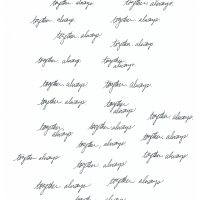 together always
together always.
together always
together always.
together always
together always
together always
together always.
together always
together always.
together always
together
always
together always.
together
always
together always
together always.
together always
together always.
together always
together always
together always
together always